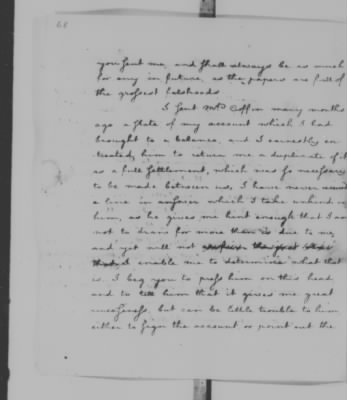 68
you sent me, and shall always be as much
for any in future, as the papers are full of
the grossest falsehoods
I sent Mr Coffin many months
ago a state of my account which I had
brought to a balance, and I earnestly en
treated him to return me a duplicate of it
as a full settlement, which was so necessary
to be made between us, I have never
a line in answer which I take unkind in
him, as he gives me hint enough that I am
not to draw for more than is due to me,
and yet will not
enable me to determine what that
is. I beg you to press him on this head
and to tell him that it gives me great
uneasiness, but can be little trouble to him
either to sign the account or point out the